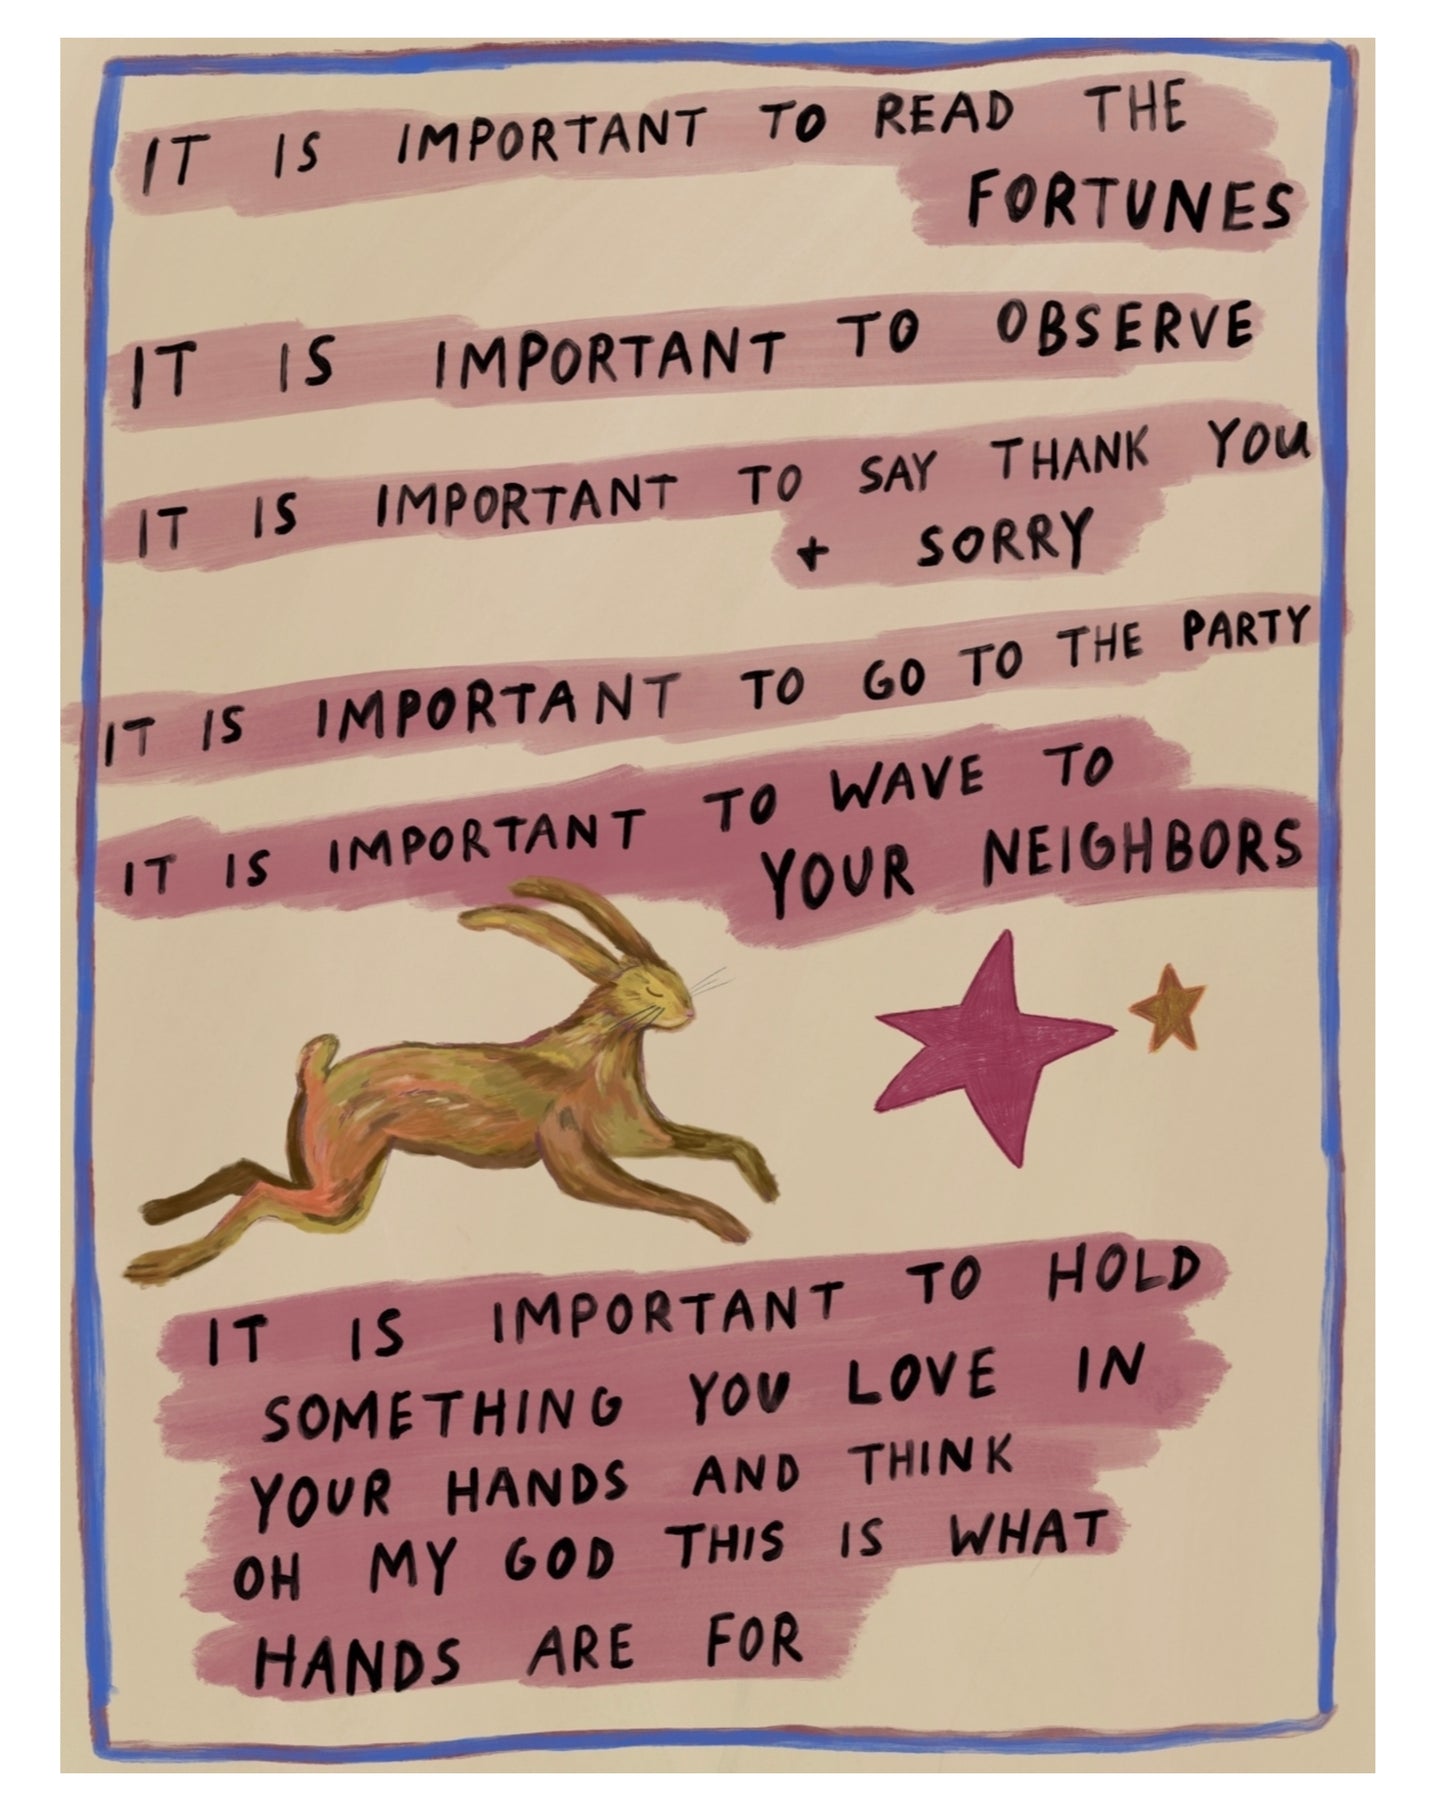 IT IS IMPORTANT TO READ THE
FORTUNES
IT IS IMPORTANT TO OBSERVE
IT IS IMPORTANT TO SAY THANK YOU
+ SORRY
IT IS IMPORTANT TO GO TO THE PARTY
IT IS IMPORTANT TO WAVE TO
YOUR NEIGHBORS
IT IS IMPORTANT TO HOLD
SOMETHING YOU LOVE IN
YOUR HANDS AND THINK
OH MY GOD THIS IS WHAT
HANDS ARE FOR